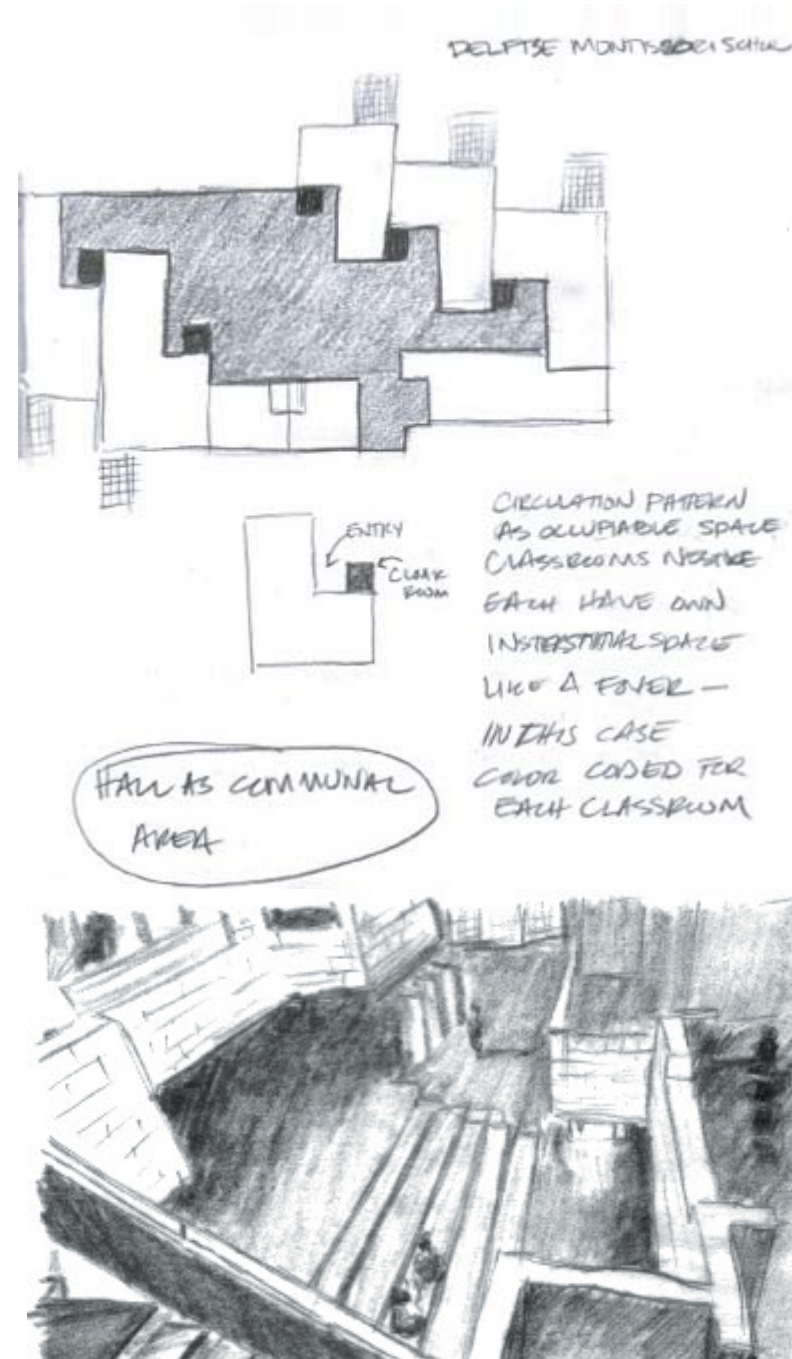 DELFTSE MONTISSORI SCHUL
ENTRY
CLOAK
ROOM
CIRCULATION PATTERN
AS OCCUPIABLE SPACE
CLASSROOMS NESTLE
EACH HAVE OWN
INSTERSTITIAL SPACE
LIKE A FOYER —
IN THIS CASE
COLOR CODED FOR
EACH CLASSROOM
HALL AS COMMUNAL
AREA